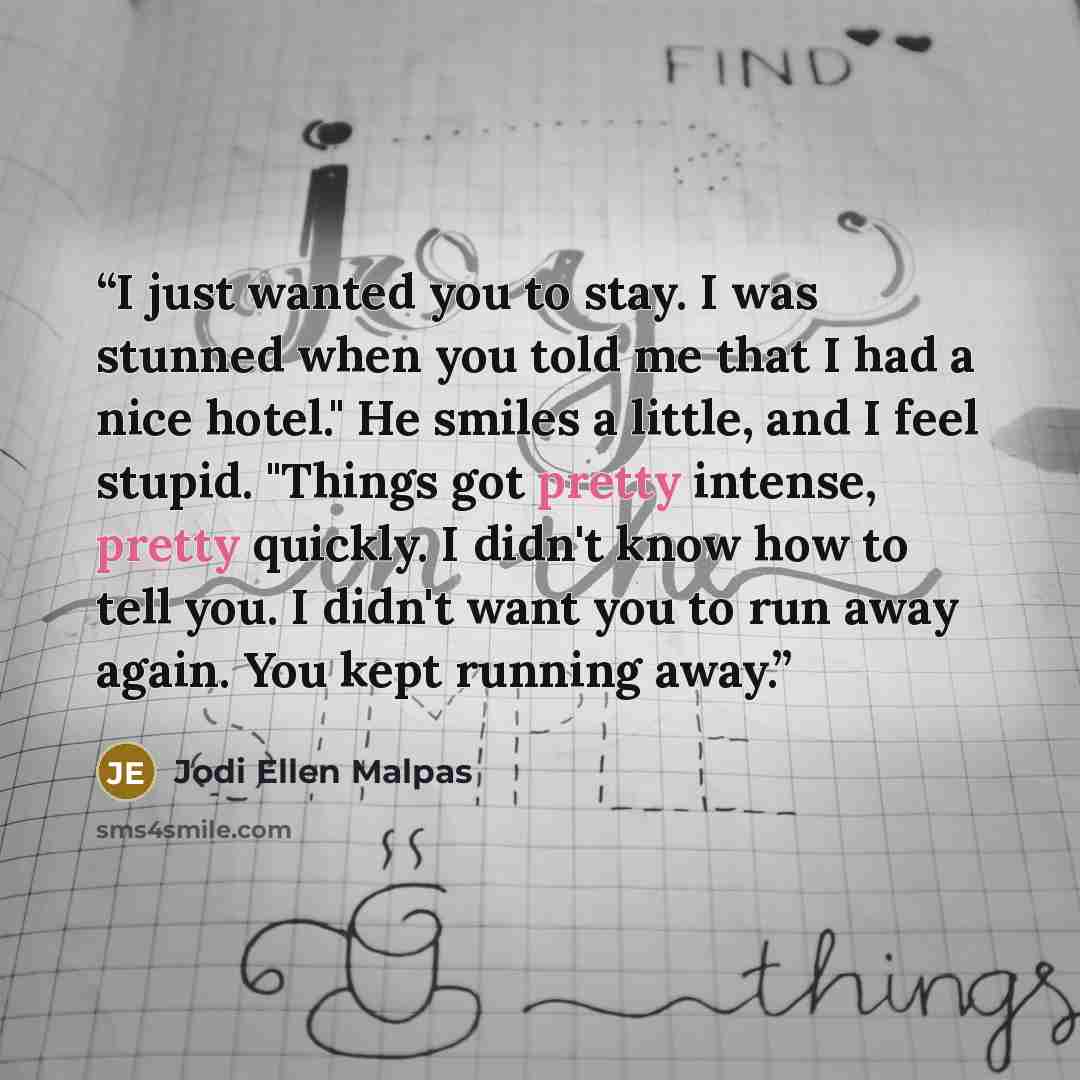 FIND
joy
“I just wanted you to stay. I was
stunned when you told me that I had a
nice hotel." He smiles a little, and I feel
stupid. "Things got pretty intense,
pretty quickly. I didn't know how to
tell you. I didn't want you to run away
again. You kept running away.”
in the
SIMPLE
JE Jodi Ellen Malpas
sms4smile.com
things